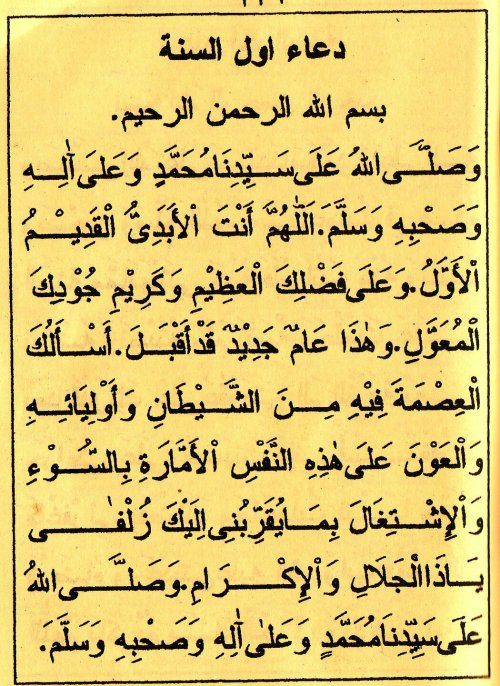 دعاء اول السنة
بسم الله الرحمن الرحيم.
وَصَلَّى اللهُ عَلَى سَيِّدِنَا مُحَمَّدٍ وَعَلَى آلِهِ
وَصَحْبِهِ وَسَلَّمَ. اَللّٰهُمَّ أَنْتَ اْلأَبَدِىُّ الْقَدِيْمُ
اْلأَوَّلُ. وَعَلَى فَضْلِكَ الْعَظِيْمِ وَكَرِيْمِ جُوْدِكَ
الْمُعَوَّلِ. وَهٰذَا عَامٌ جَدِيْدٌ قَدْ أَقْبَلَ. أَسْأَلُكَ
الْعِصْمَةَ فِيْهِ مِنَ الشَّيْطَانِ وَأَوْلِيَائِهِ
وَالْعَوْنَ عَلَى هٰذِهِ النَّفْسِ اْلأَمَّارَةِ بِالسُّوْءِ
وَاْلإِشْتِغَالَ بِمَا يُقَرِّبُنِى إِلَيْكَ زُلْفَى
يَاذَا الْجَلَالِ وَاْلإِكْرَامِ. وَصَلَّى اللهُ
عَلَى سَيِّدِنَا مُحَمَّدٍ وَعَلٰى آلِهِ وَصَحْبِهِ وَسَلَّمَ.